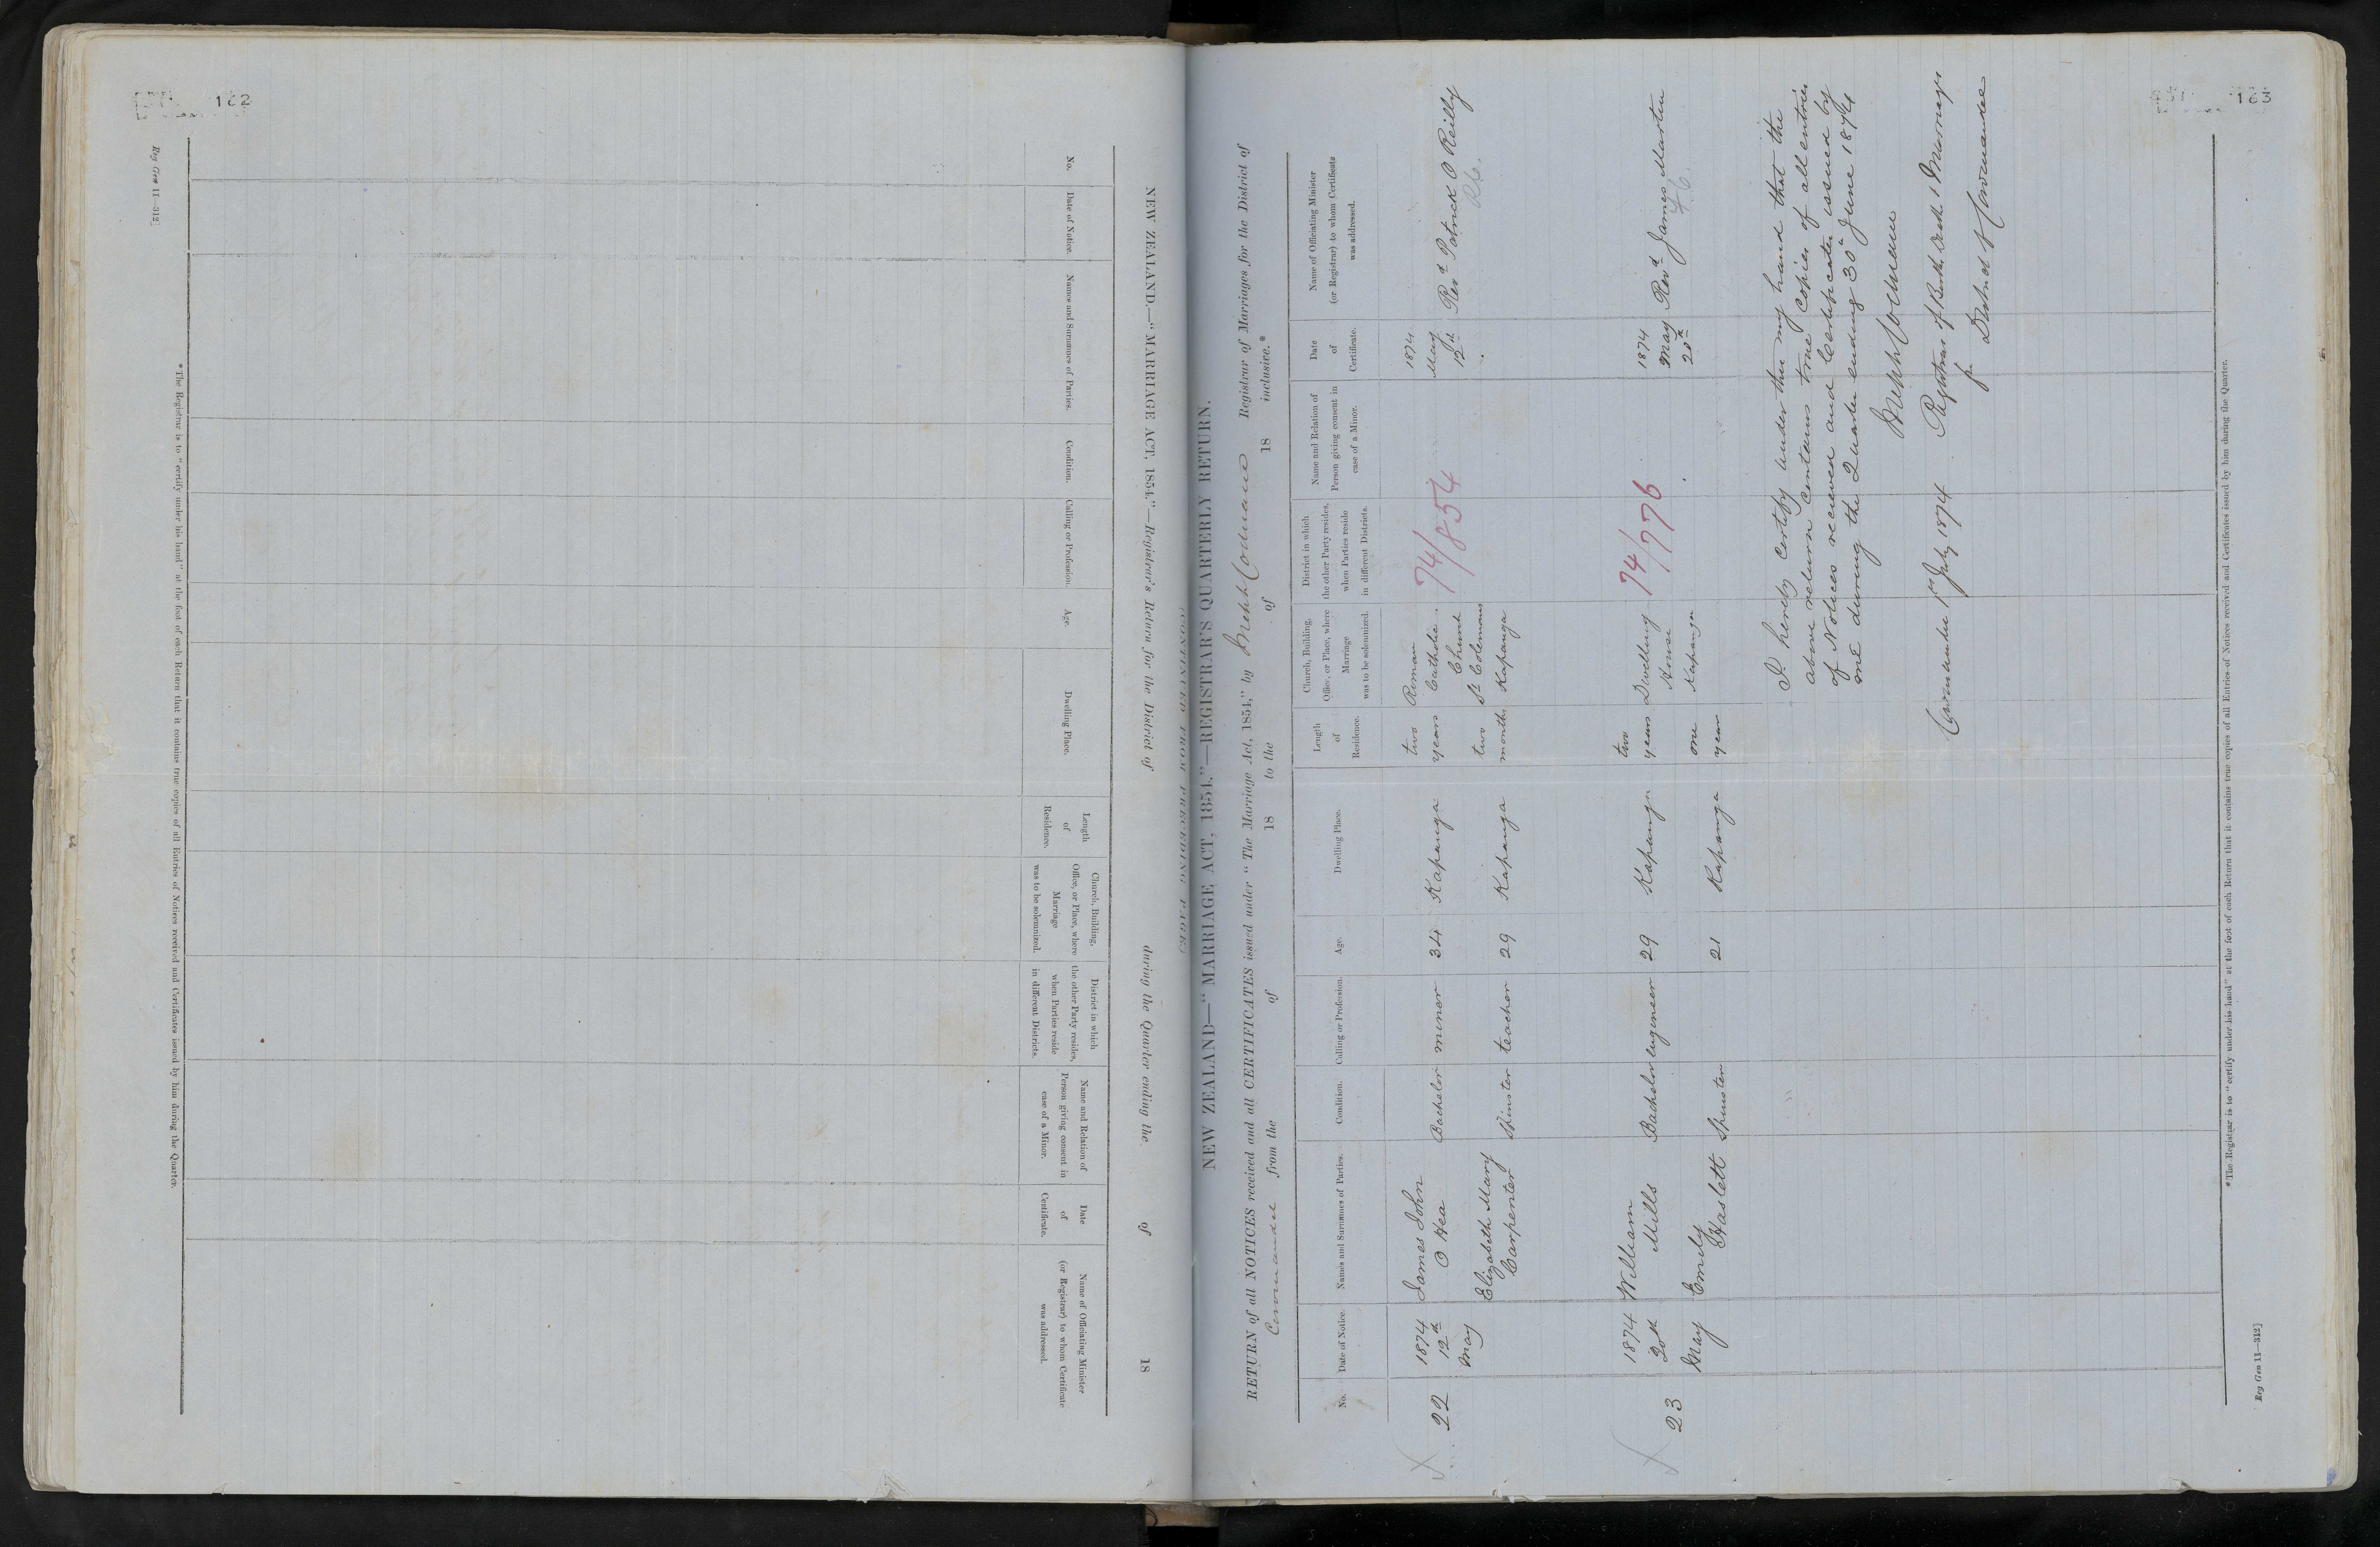 162
Reg Gen 11—312]
NEW ZEALAND.—"MARRIAGE ACT, 1854."—Registrar's Return for the District of during the Quarter ending the of 18
No.
Date of Notice.
Names and Surnames of Parties.
Condition.
Calling or Profession.
Age.
Dwelling Place.
Length
of
Residence.
Church, Building,
Office, or Place, where
Marriage
was to be solemnized.
District in which
the other Party resides,
when Parties reside
in different Districts.
Name and Relation of
Person giving consent in
case of a Minor.
Date
of
Certificate.
Name of Officiating Minister
(or Registrar) to whom Certificate
was addressed.
*The Registrar is to "certify under his hand" at the foot of each Return that it contains true copies of all Entries of Notices received and Certificates issued by him during the Quarter.
163
NEW ZEALAND—"MARRIAGE ACT, 1854."—REGISTRAR'S QUARTERLY RETURN.
RETURN of all NOTICES received and all CERTIFICATES issued under "The Marriage Act, 1854," by Registrar of Marriages for the District of
Coromandel from the of 18 to the of 18 inclusive.*
No.
Date of Notice.
Names and Surnames of Parties.
Condition.
Calling or Profession.
Age.
Dwelling Place.
Length
of
Residence.
Church, Building,
Office, or Place, where
Marriage
was to be solemnized.
District in which
the other Party resides,
when Parties reside
in different Districts.
Name and Relation of
Person giving consent in
case of a Minor.
Date
of
Certificate.
Name of Officiating Minister
(or Registrar) to whom Certificate
was addressed.
22
1874
12th
May
James John
O Hea
Elizabeth Mary
Carpenter
Bachelor
Spinster
miner
teacher
34
29
Kapanga
Kapanga
two
years
two
months
Roman
Catholic
Church
St Colemans
Kapanga
74/854
1874
May
12th
Revd Patrick O Reilly
RC.
23
1874
20th
May
William
Mills
Emily
Haslett
Bachelor
Spinster
engineer
29
21
Kapanga
Kapanga
two
years
one
year
Dwelling
House
Kapanga
74/776
1874
May
20th
Revd James Martin
I hereby certify under my hand that the
above return contains true copies of all entries
of Notices received and Certificates issued by
me during the Quarter ending 30th June 1874
Registrar of Births, Deaths & Marriages
for District of Coromandel
Coromandel 1st July 1874
*The Registrar is to "certify under his hand" at the foot of each Return that it contains true copies of all Entries of Notices received and Certificates issued by him during the Quarter.
Reg Gen 11—312]